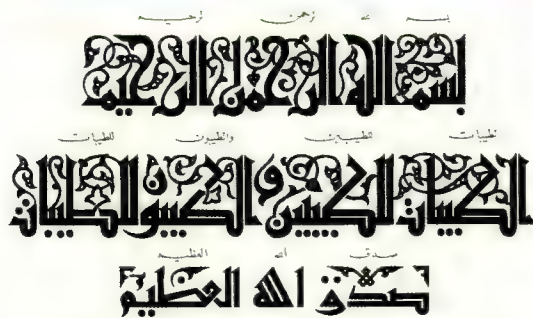 بسم الله الرحمن الرحيم
بسم الله الرحمن الرحيم
الطيبات للطيبين والطيبون للطيبات
الطيبات للطيبين والطيبون للطيبات
صدق الله العظيم
صدق الله العظيم